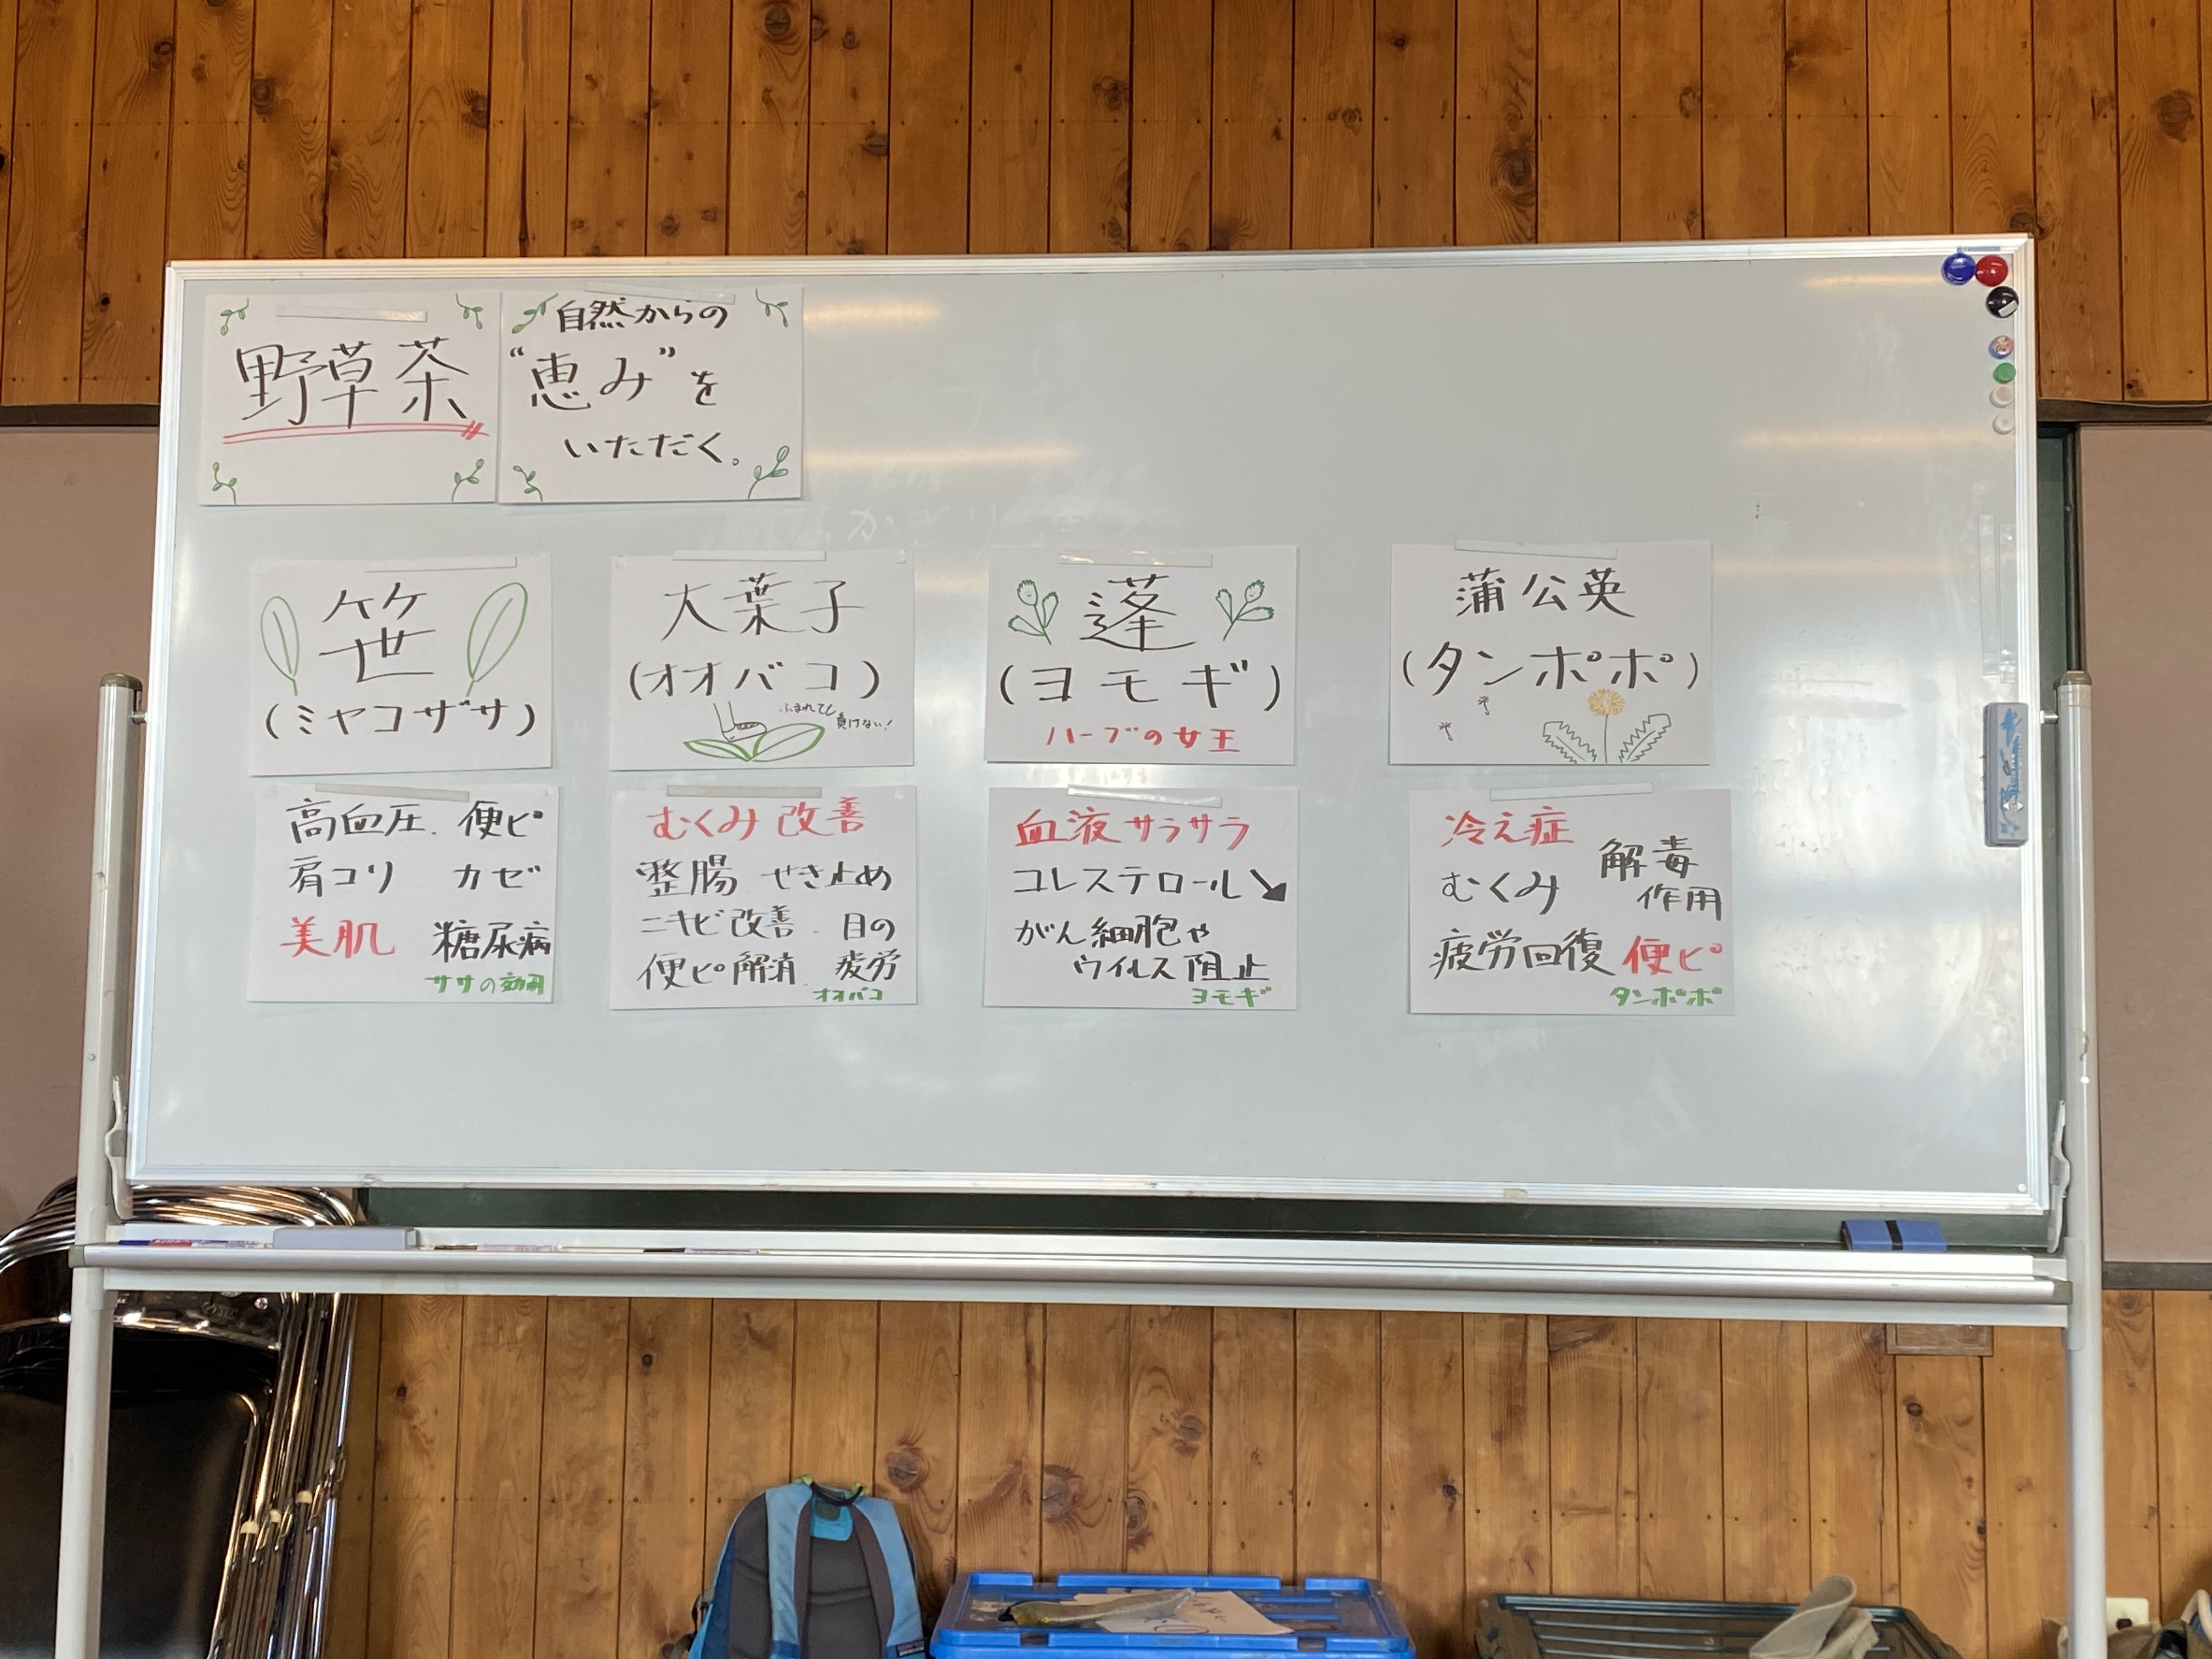 野草茶
自然からの
“恵み”を
いただく。
笹
(ミヤコザサ)
高血圧. 便ピ
肩コリ カゼ
美肌 糖尿病
ササの効用
大葉子
(オオバコ)
ふまれても
負けない!
むくみ改善
整腸 せき止め
ニキビ改善. 目の
便ピ解消. 疲労
オオバコ
蓬
(ヨモギ)
ハーブの女王
血液サラサラ
コレステロール↘
がん細胞や
ウイルス阻止
ヨモギ
蒲公英
(タンポポ)
冷え症
解毒
むくみ
作用
疲労回復 便ピ
タンポポ